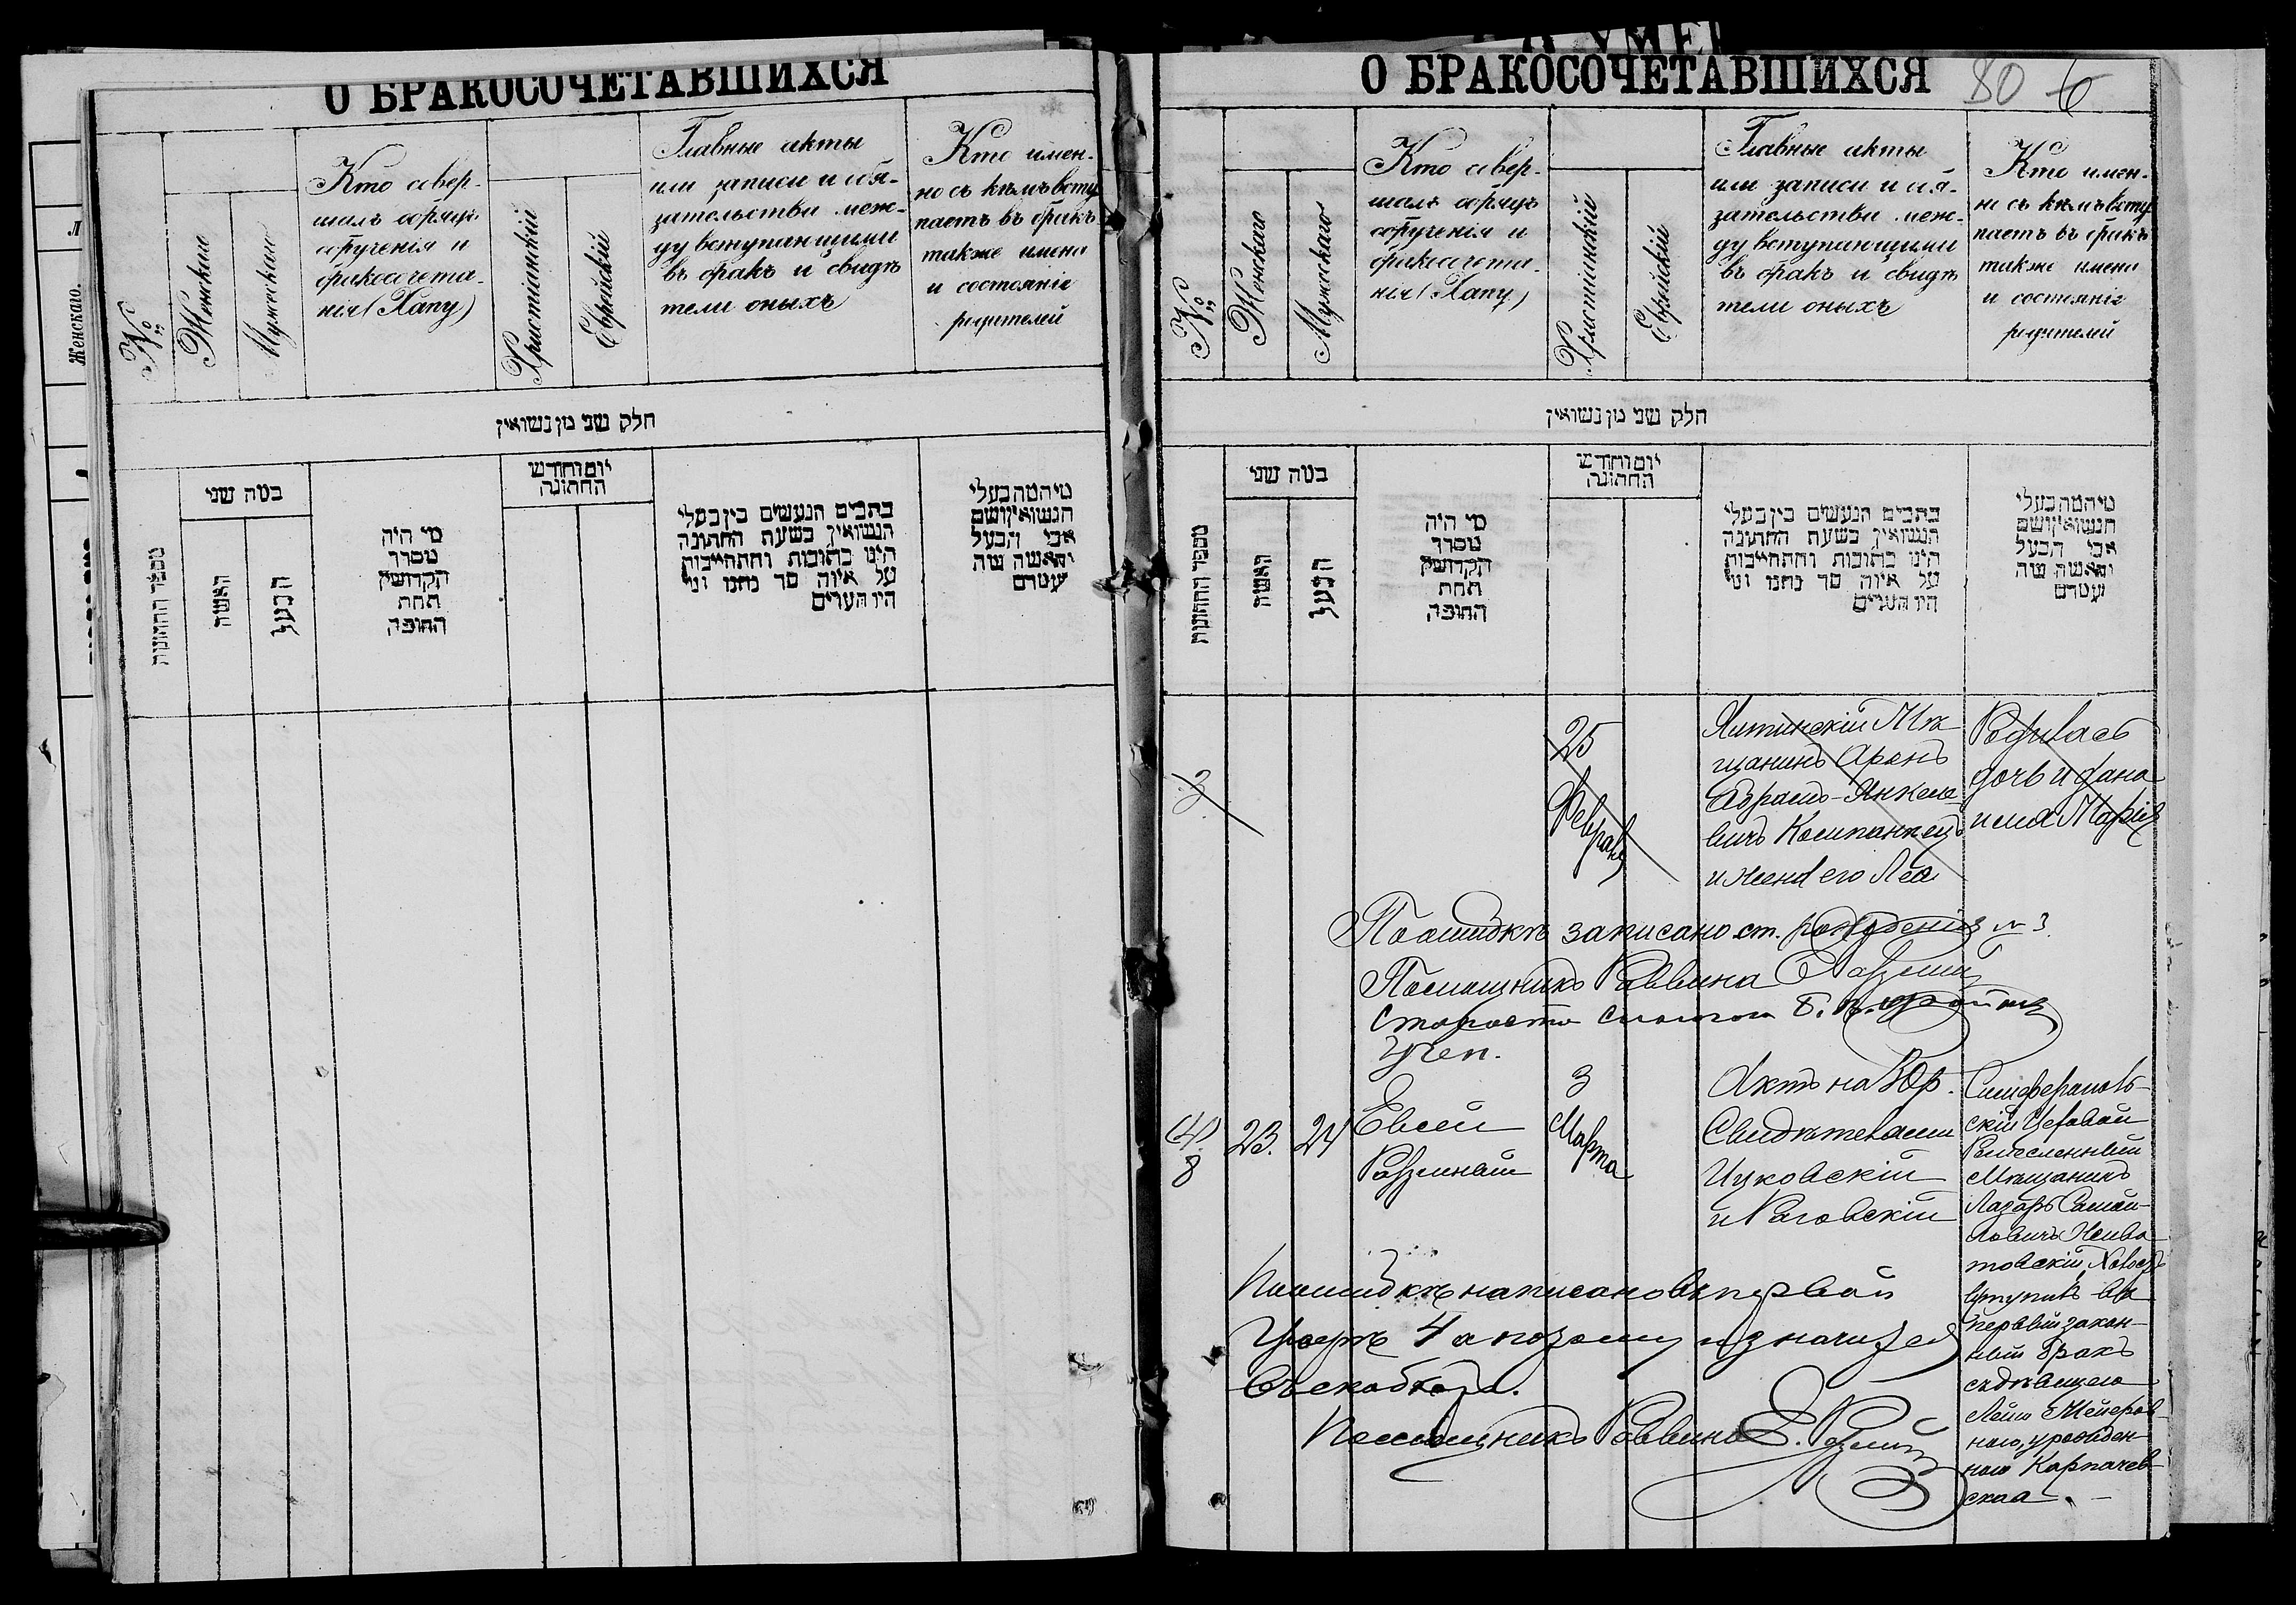 О БРАКОСОЧЕТАВШИХСЯ
Женскаго.
№
Женскаго
Мужескаго
Кто совер-
шалъ обрядъ
обрученія и
бракосочета-
нія (Хапу)
Христіанскій
Еврейскій
Главные акты
или записи и обя-
зательства меж-
ду вступающими
въ бракъ и свидѣ
тели оныхъ
Кто имен-
но съ кѣмъ всту
паетъ въ бракъ
также имена
и состояніе
родителей
חלק שני מן נשואין
מספר החתונות
כמה שני
האשה
הבעל
מי היה
מסדר
הקדושין
תחת
החופה
יום וחודש
החתונה
כתבים הנעשים בין בעלי
הנשואין בשעת החתונה
היינו כתובות והתחייבות
על איזה סך נתנו ומי
היו העדים
מי המה בעלי
הנשואין ושם
אבי הבעל
והאשה ומה
מעמדם
О БРАКОСОЧЕТАВШИХСЯ
80 6
№
Женскаго
Мужескаго
Кто совер-
шалъ обрядъ
обрученія и
бракосочета-
нія (Хапу)
Христіанскій
Еврейскій
Главные акты
или записи и обя-
зательства меж-
ду вступающими
въ бракъ и свидѣ
тели оныхъ
Кто имен-
но съ кѣмъ всту
паетъ въ бракъ
также имена
и состояніе
родителей
חלק שני מן נשואין
מספר החתונות
כמה שני
האשה
הבעל
מי היה
מסדר
הקדושין
תחת
החופה
יום וחודש
החתונה
כתבים הנעשים בין בעלי
הנשואין בשעת החתונה
היינו כתובות והתחייבות
על איזה סך נתנו ומי
היו העדים
מי המה בעלי
הנשואין ושם
אבי הבעל
והאשה ומה
מעמדם
3
25
Февраля
Ялтинскій Мѣ
щанинъ Аронъ
Абрамъ-Янкеле-
вичъ Компанеецъ
и жена его Леа
Родилась
дочь и дана
имя Марія
По ошибкѣ записано ст. рожденія № 3
Помощникъ Раввина
Староста
Учен.
(4)
8
23.
24
Евсей
3
Марта
Актъ на 30 р.
Свидѣтелами
Цуковскій
и Роговскій
Симферополь-
скій Цеховой
Ремесленный
Мѣщанинъ
Лазарь Самой-
ловичъ
вступилъ въ
первый закон-
ный бракъ
съ дѣвицею
Лею Мейеров-
ною, урожден-
ною Карпачев-
ская. -
По ошибкѣ написано въ первой
Графѣ 4 а
въ скобкахъ.
Помощникъ Раввина Е.